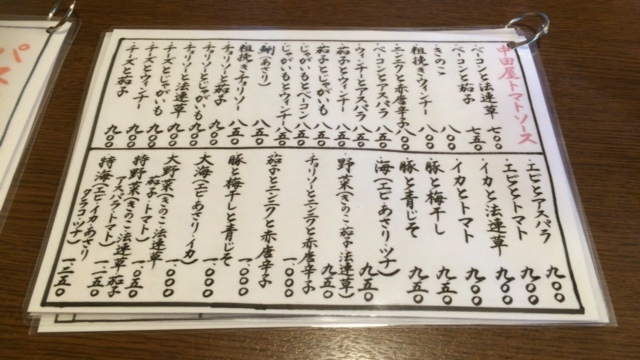 中田屋トマトソース
ベーコンと法連草 七〇〇
ベーコンと茄子 七五〇
きのこ 八〇〇
粗挽きウィンナー 八〇〇
ニンニクと赤唐辛子 八〇〇
ベーコンとアスパラ 八五〇
ウィンナーとアスパラ 八五〇
茄子とウィンナー 八五〇
茄子とじゃがいも 八五〇
じゃがいもとベーコン 八五〇
じゃがいもとウィンナー 八五〇
鯏(あさり) 八五〇
粗挽きチョリソー 八五〇
チョリソーと茄子 九〇〇
チョリソーとじゃがいも 九〇〇
チョリソーと法連草 九〇〇
チーズとじゃがいも 九〇〇
チーズとウィンナー 九〇〇
チーズと茄子 九〇〇
・エビとアスパラ 九〇〇
・エビとトマト 九〇〇
・イカと法連草 九〇〇
・イカとトマト 九〇〇
・豚と梅干し 九五〇
・豚と青じそ 九五〇
・海(エビ・あさり・ツナ) 九五〇
・野菜(きのこ・茄子・法連草) 九五〇
チョリソーとニンニクと赤唐辛子 一、〇〇〇
・茄子とニンニクと赤唐辛子 一、〇〇〇
・豚と梅干しと青じそ 一、〇〇〇
・大海(エビ・あさり・イカ) 一、〇〇〇
大野菜(きのこ・法連草・茄子・トマト) 一、〇五〇
特野菜(きのこ・法連草・茄子・アスパラ・トマト) 一、一五〇
特海(エビ・イカ・あさり・タラコ・ツナ) 一、二五〇
パス